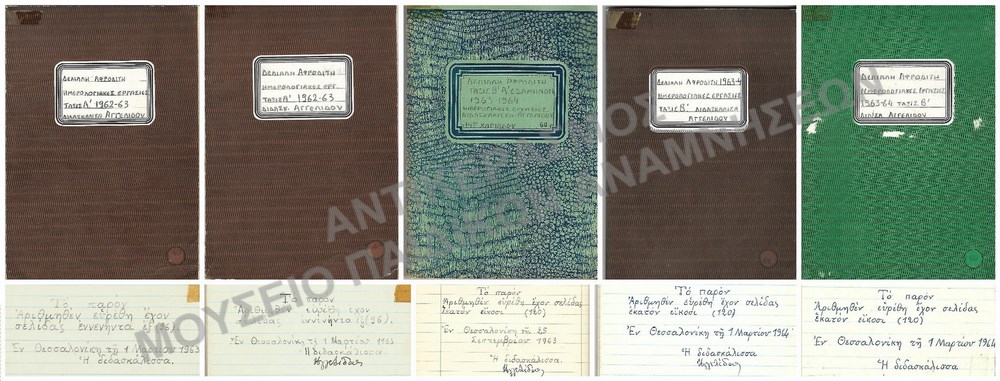 ΔΕΛΙΑΛΗ ΑΦΡΟΔΙΤΗ
ΗΜΕΡΟΛΟΓΙΑΚΕΣ ΕΡΓΑΣΙΕΣ
ΤΑΞΙΣ Α' 1962-63
ΔΙΔΑΣΚΑΛΙΣΣΑ ΑΓΓΕΛΙΔΟΥ
ΔΕΛΙΑΛΗ ΑΦΡΟΔΙΤΗ
ΗΜΕΡΟΛΟΓΙΑΚΕΣ ΕΡΓ.
ΤΑΞΙΣ Α' 1962-63
ΔΙΔΑΣΚ. ΑΓΓΕΛΙΔΟΥ
ΔΕΛΙΑΛΗ ΑΦΡΟΔΙΤΗ
ΤΑΞΙΣ Β' Α' ΕΞΑΜΗΝΟΝ
1963 1964
ΗΜΕΡΟΛΟΓΙΑΚΕΣ ΕΡΓΑΣΙΕΣ
ΔΙΔΑΣΚΑΛΙΣΣΑ ΑΓΓΕΛΙΔΟΥ
ΔΕΛΙΑΛΗ ΑΦΡΟΔΙΤΗ 1963-4
ΗΜΕΡΟΛΟΓΙΑΚΕΣ ΕΡΓΑΣΙΕΣ
ΤΑΞΙΣ Β' ΔΙΔΑΣΚΑΛΙΣΣΑ
ΑΓΓΕΛΙΔΟΥ
ΔΕΛΙΑΛΗ ΑΦΡΟΔΙΤΗ
ΗΜΕΡΟΛΟΓΙΑΚΕΣ ΕΡΓΑΣΙΕΣ
1963-64 ΤΑΞΙΣ Β'
ΑΓΓΕΛΙΔΟΥ
Τό παρόν
Ἀριθμηθέν εὑρέθη ἔχον
σελίδας ἐννενήντα ἕξ (96).
Ἐν Θεσσαλονίκῃ τῇ 1 Μαρτίου 1963
Ἡ διδασκάλισσα.
Τό παρόν
Ἀριθμηθέν εὑρέθη ἔχον
σελίδας ἐννενήντα ἕξ (96).
Ἐν Θεσσαλονίκῃ τῇ 1 Μαρτίου 1963
Ἡ διδασκάλισσα.
Τό παρόν
Ἀριθμηθέν εὑρέθη ἔχον σελίδας
ἑκατόν εἴκοσι (120)
Ἐν Θεσσαλονίκῃ τῇ 25
Σεπτεμβρίου 1963
Ἡ διδασκάλισσα
Τό παρόν
Ἀριθμηθέν εὑρέθη ἔχον σελίδας
ἑκατόν εἴκοσι (120)
Ἐν Θεσσαλονίκῃ τῇ 1 Μαρτίου 1964
Ἡ διδασκάλισσα
Τό παρόν
Ἀριθμηθέν εὑρέθη ἔχον σελίδας
ἑκατόν εἴκοσι (120)
Ἐν Θεσσαλονίκῃ τῇ 1 Μαρτίου 1964
Ἡ διδασκάλισσα
ΜΟΥΣΕΙΟ ΠΑΙΔΙΚΩΝ ΑΝΑΜΝΗΣΕΩΝ